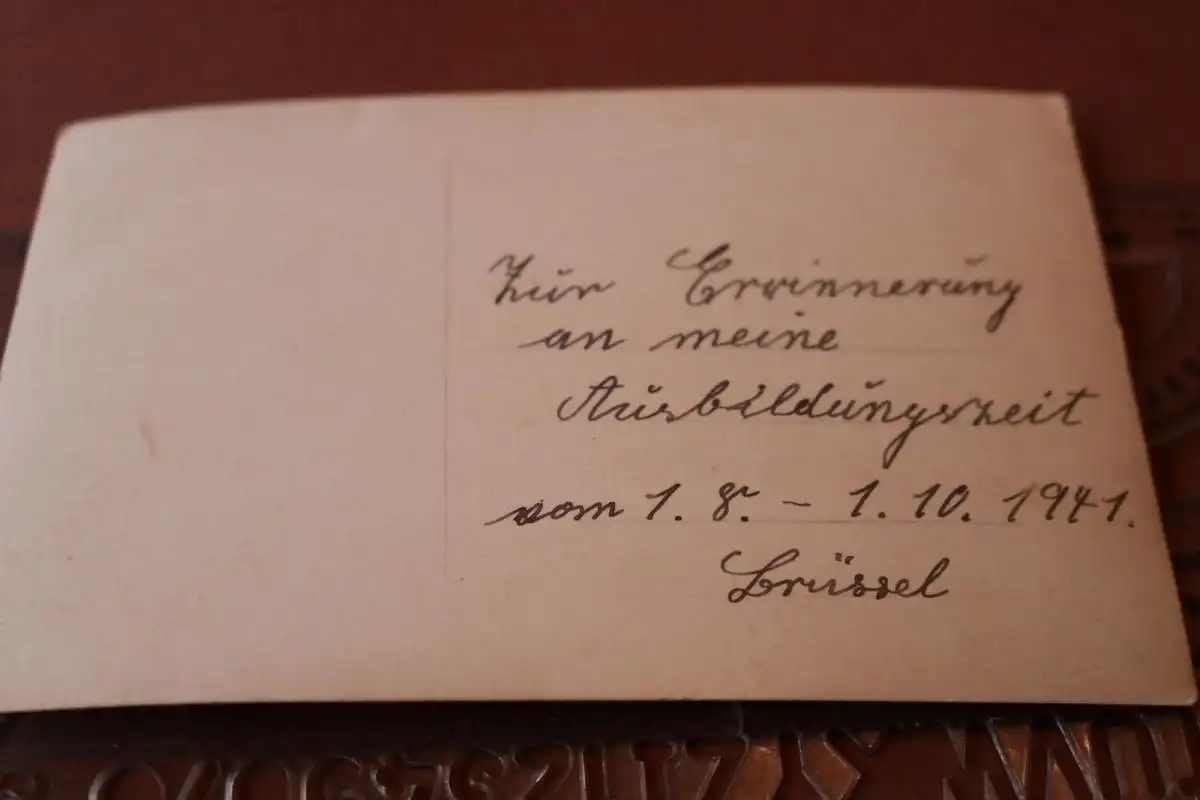 Zur Erinnerung
an meine
Ausbildungszeit
vom 1. 8. - 1. 10. 1941.
Brüssel